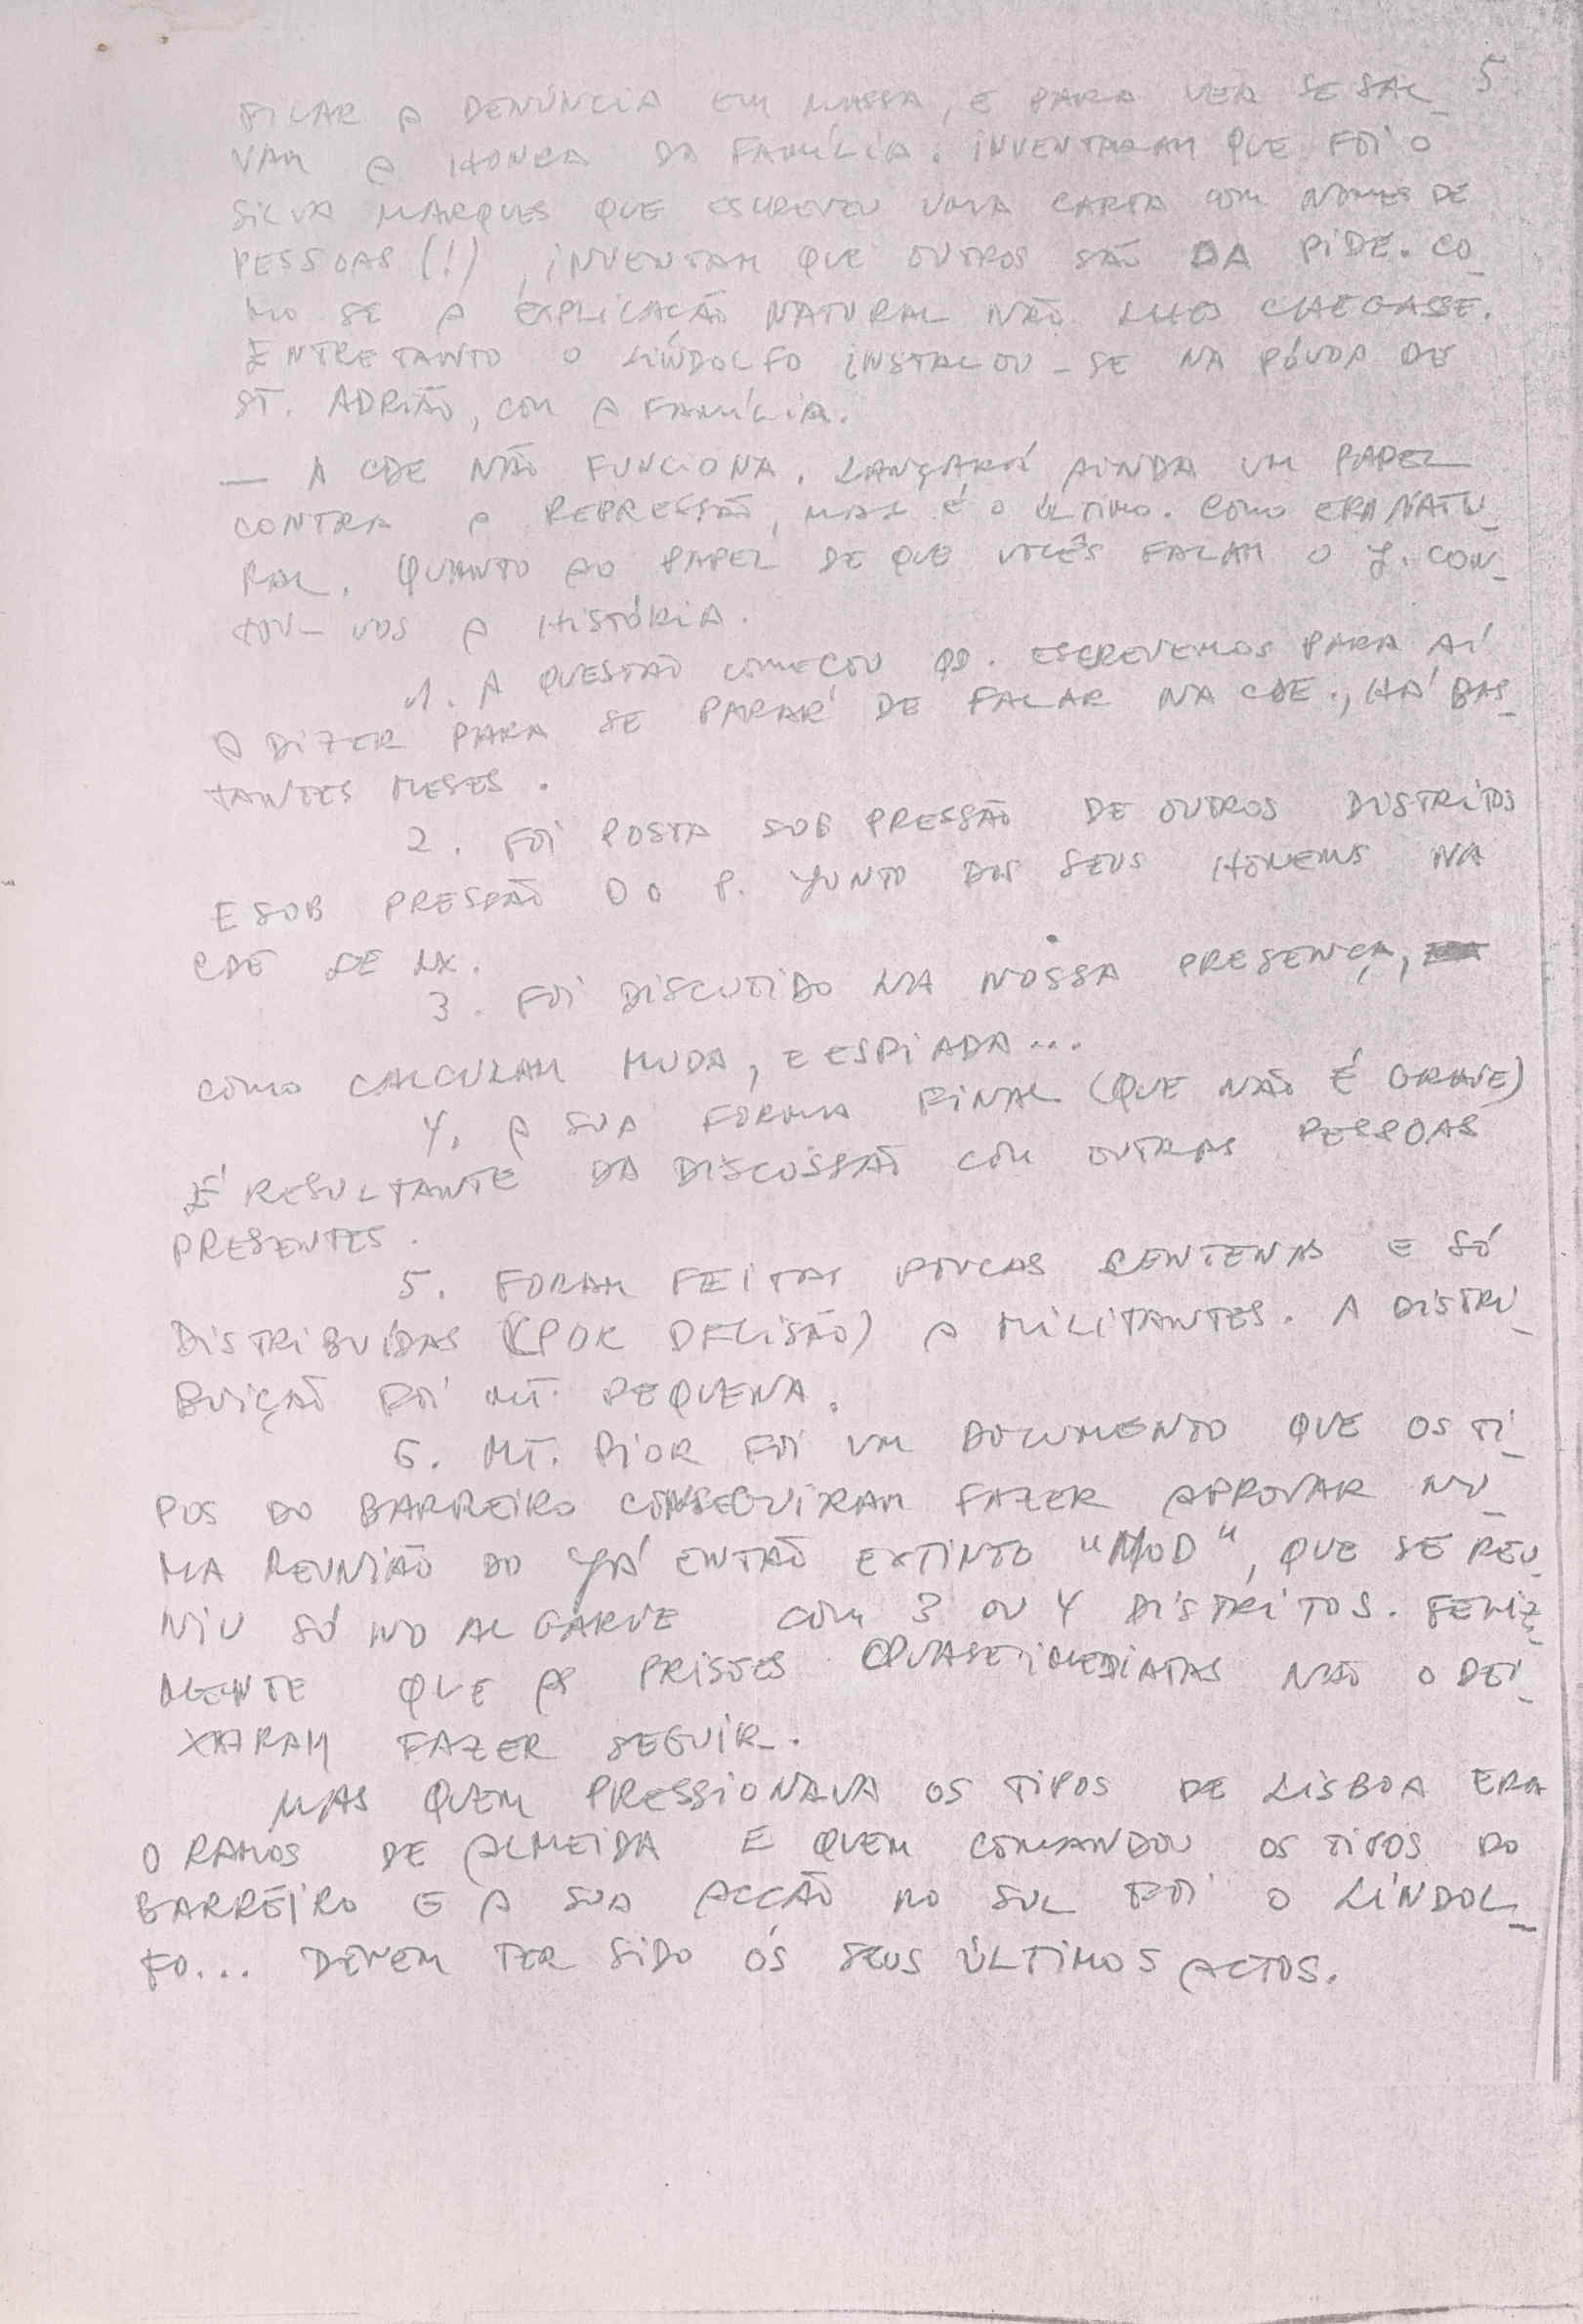 5.
FICAR A DENÚNCIA EM MASSA, E PARA VER SE SAL_
VAM A HONRA DA FAMÍLIA. INVENTARAM QUE FOI O
SILVA MARQUES QUE ESCREVEU UMA CARTA COM NOMES DE
PESSOAS (!), INVENTAM QUE OUTROS SÃO DA PIDE. CO_
MO SE A EXPLICAÇÃO NATURAL NÃO LHES CHEGASSE.
ENTRETANTO O LINDOLFO INSTALOU-SE NA PÓVOA DE
ST. ADRIÃO, COM A FAMÍLIA.
— A CDE NÃO FUNCIONA. LANÇARÁ AINDA UM PAPEL
CONTRA A REPRESSÃO, MAS É O ÚLTIMO. COMO ERA NATU_
RAL. QUANTO AO PAPEL DE QUE VOCÊS FALAM O J. CON_
TOU-VOS A HISTÓRIA.
1. A QUESTÃO COMEÇOU QD. ESCREVEMOS PARA AÍ
A DIZER PARA SE PARAR DE FALAR NA CDE., HÁ BAS_
TANTES MESES.
2. FOI POSTA SOB PRESSÃO DE OUTROS DISTRITOS
E SOB PRESSÃO DO P. JUNTO DOS SEUS HOMENS NA
CDE DE LX.
3. FOI DISCUTIDO NA NOSSA PRESENÇA,
COMO CALCULAM MUDA, E ESPIADA...
4. A SUA FORMA FINAL (QUE NÃO É GRAVE)
É RESULTANTE DA DISCUSSÃO COM OUTRAS PESSOAS
PRESENTES.
5. FORAM FEITAS POUCAS CENTENAS E SÓ
DISTRIBUÍDAS (POR DECISÃO) A MILITANTES. A DISTRI_
BUIÇÃO FOI MT. PEQUENA.
6. MT. PIOR FOI UM DOCUMENTO QUE OS TI_
POS DO BARREIRO CONSEGUIRAM FAZER APROVAR NU_
MA REUNIÃO DO JÁ ENTÃO EXTINTO "MOD", QUE SE REU_
NIU SÓ NO ALGARVE COM 3 OU 4 DISTRITOS. FELIZ_
MENTE QUE AS PRISÕES QUASE IMEDIATAS NÃO O DEI_
XARAM FAZER SEGUIR.
MAS QUEM PRESSIONAVA OS TIPOS DE LISBOA ERA
O RAMOS DE ALMEIDA E QUEM COMANDOU OS TIPOS DO
BARREIRO E A SUA ACÇÃO NO SUL FOI O LINDOL_
FO... DEVEM TER SIDO OS SEUS ÚLTIMOS ACTOS.